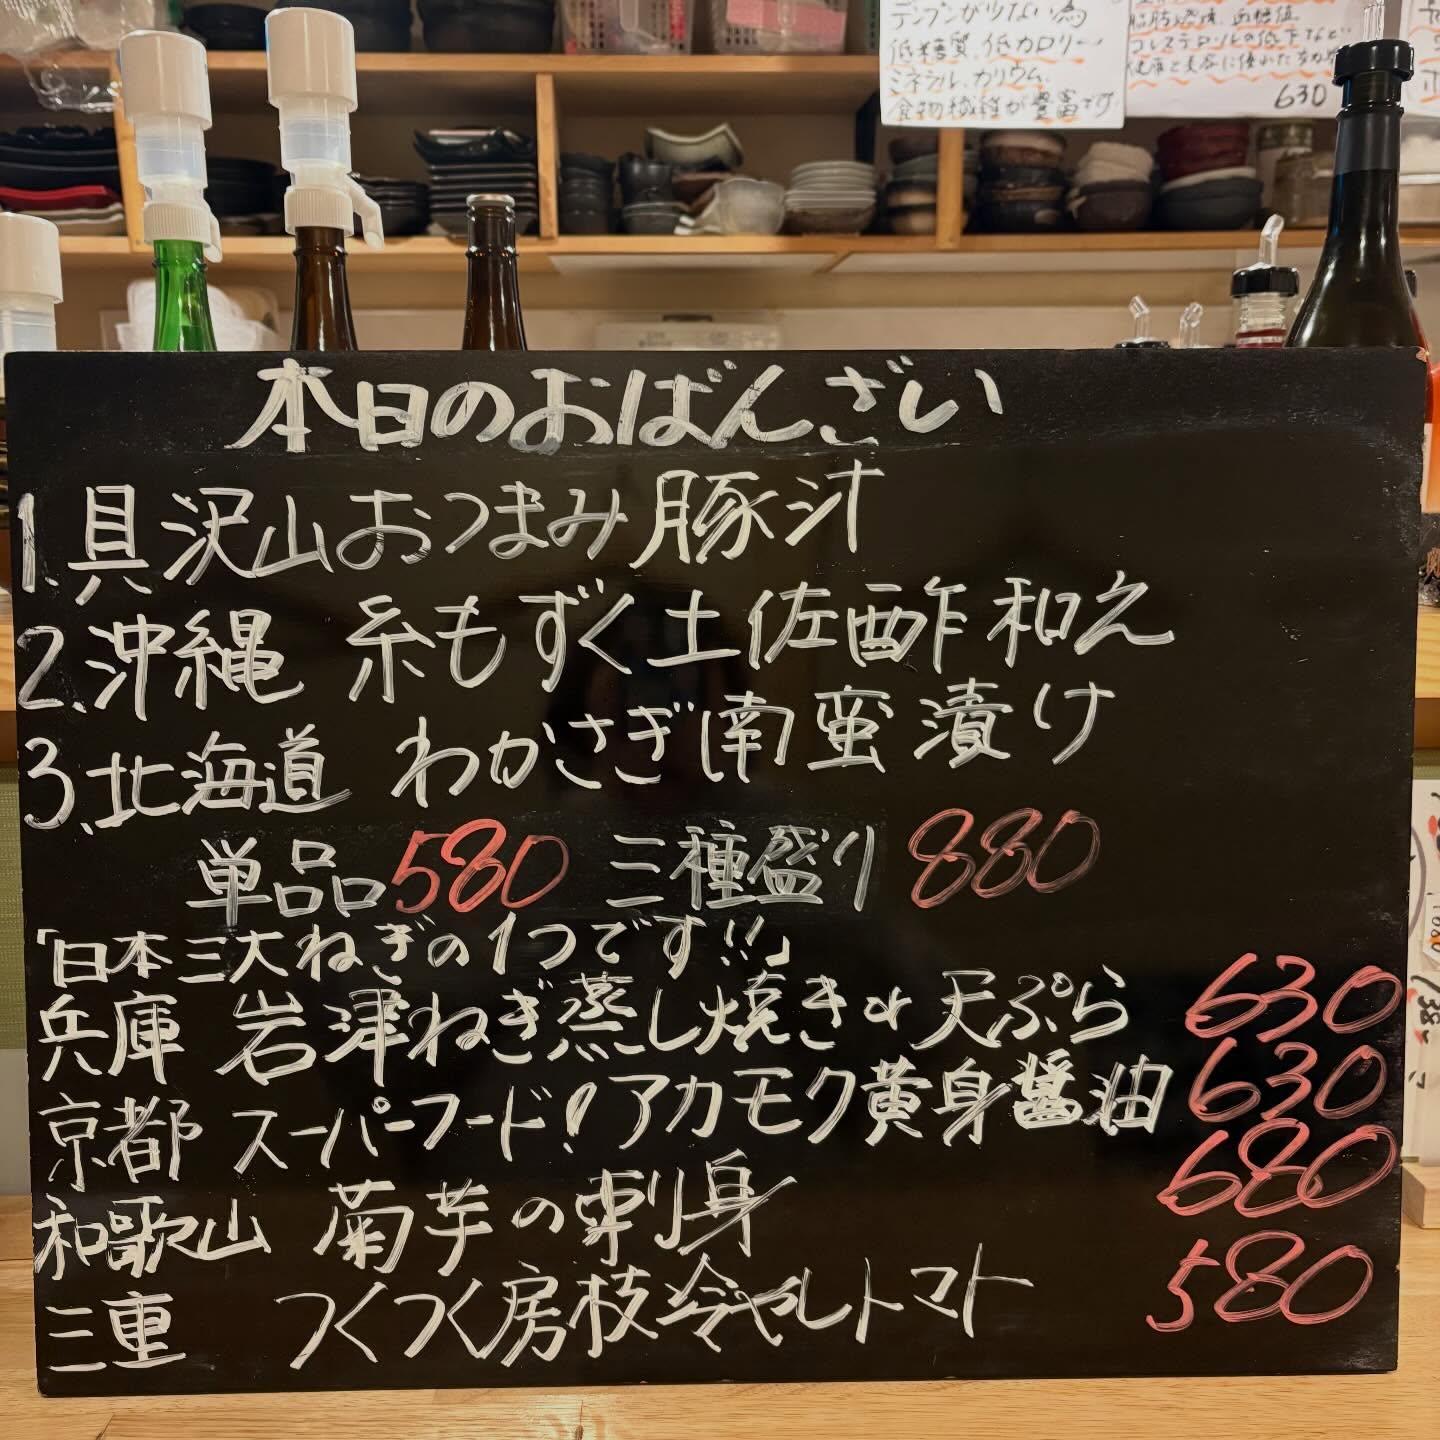 デンプンが少ない為
低糖質、低カロリー
ミネラル、カリウム、
食物繊維が豊富です。
コレステロールの低下などに
630
本日のおばんざい
1.具沢山おつまみ豚汁
2.沖縄 糸もずく土佐酢和え
3.北海道 わかさぎ南蛮漬け
単品580 三種盛り 880
「日本三大ねぎの1つです!!」
兵庫 岩津ねぎ蒸し焼きor天ぷら 630
京都 スーパーフード!アカモク黄身醤油 630
和歌山 菊芋の刺身 680
三重 つくつく房枝冷やしトマト 580